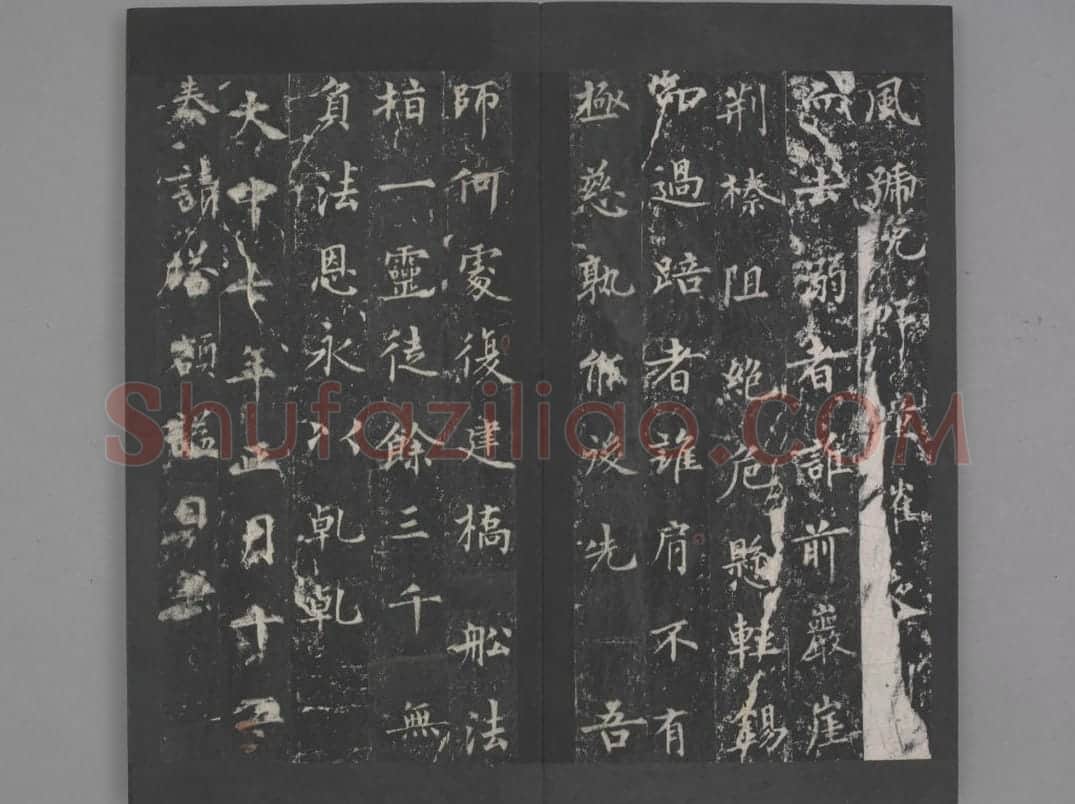 風號晚
而去溺者誰前巖崖
荆榛阻絶危懸輕錫
一過踣者誰肩不有
極慈孰能後先 吾
師何處復建橋船法
指一靈徒餘三千無
負法恩永以乹乹
大中七年正月十五
奏請塔額謚曰
Shufaziliao.COM